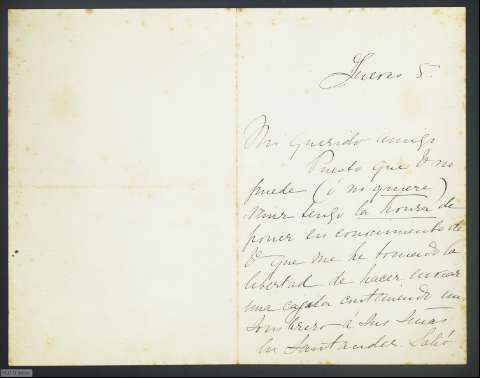 Jueves 5.
Mi querido amigo
Puesto que V no
puede (ó no quiere)
venir tengo la honra de
poner en conocimiento de
V que me he tomado la
libertad de hacer enviar
una cajita conteniendo un
sombrero á sus señas
en Santander Salió